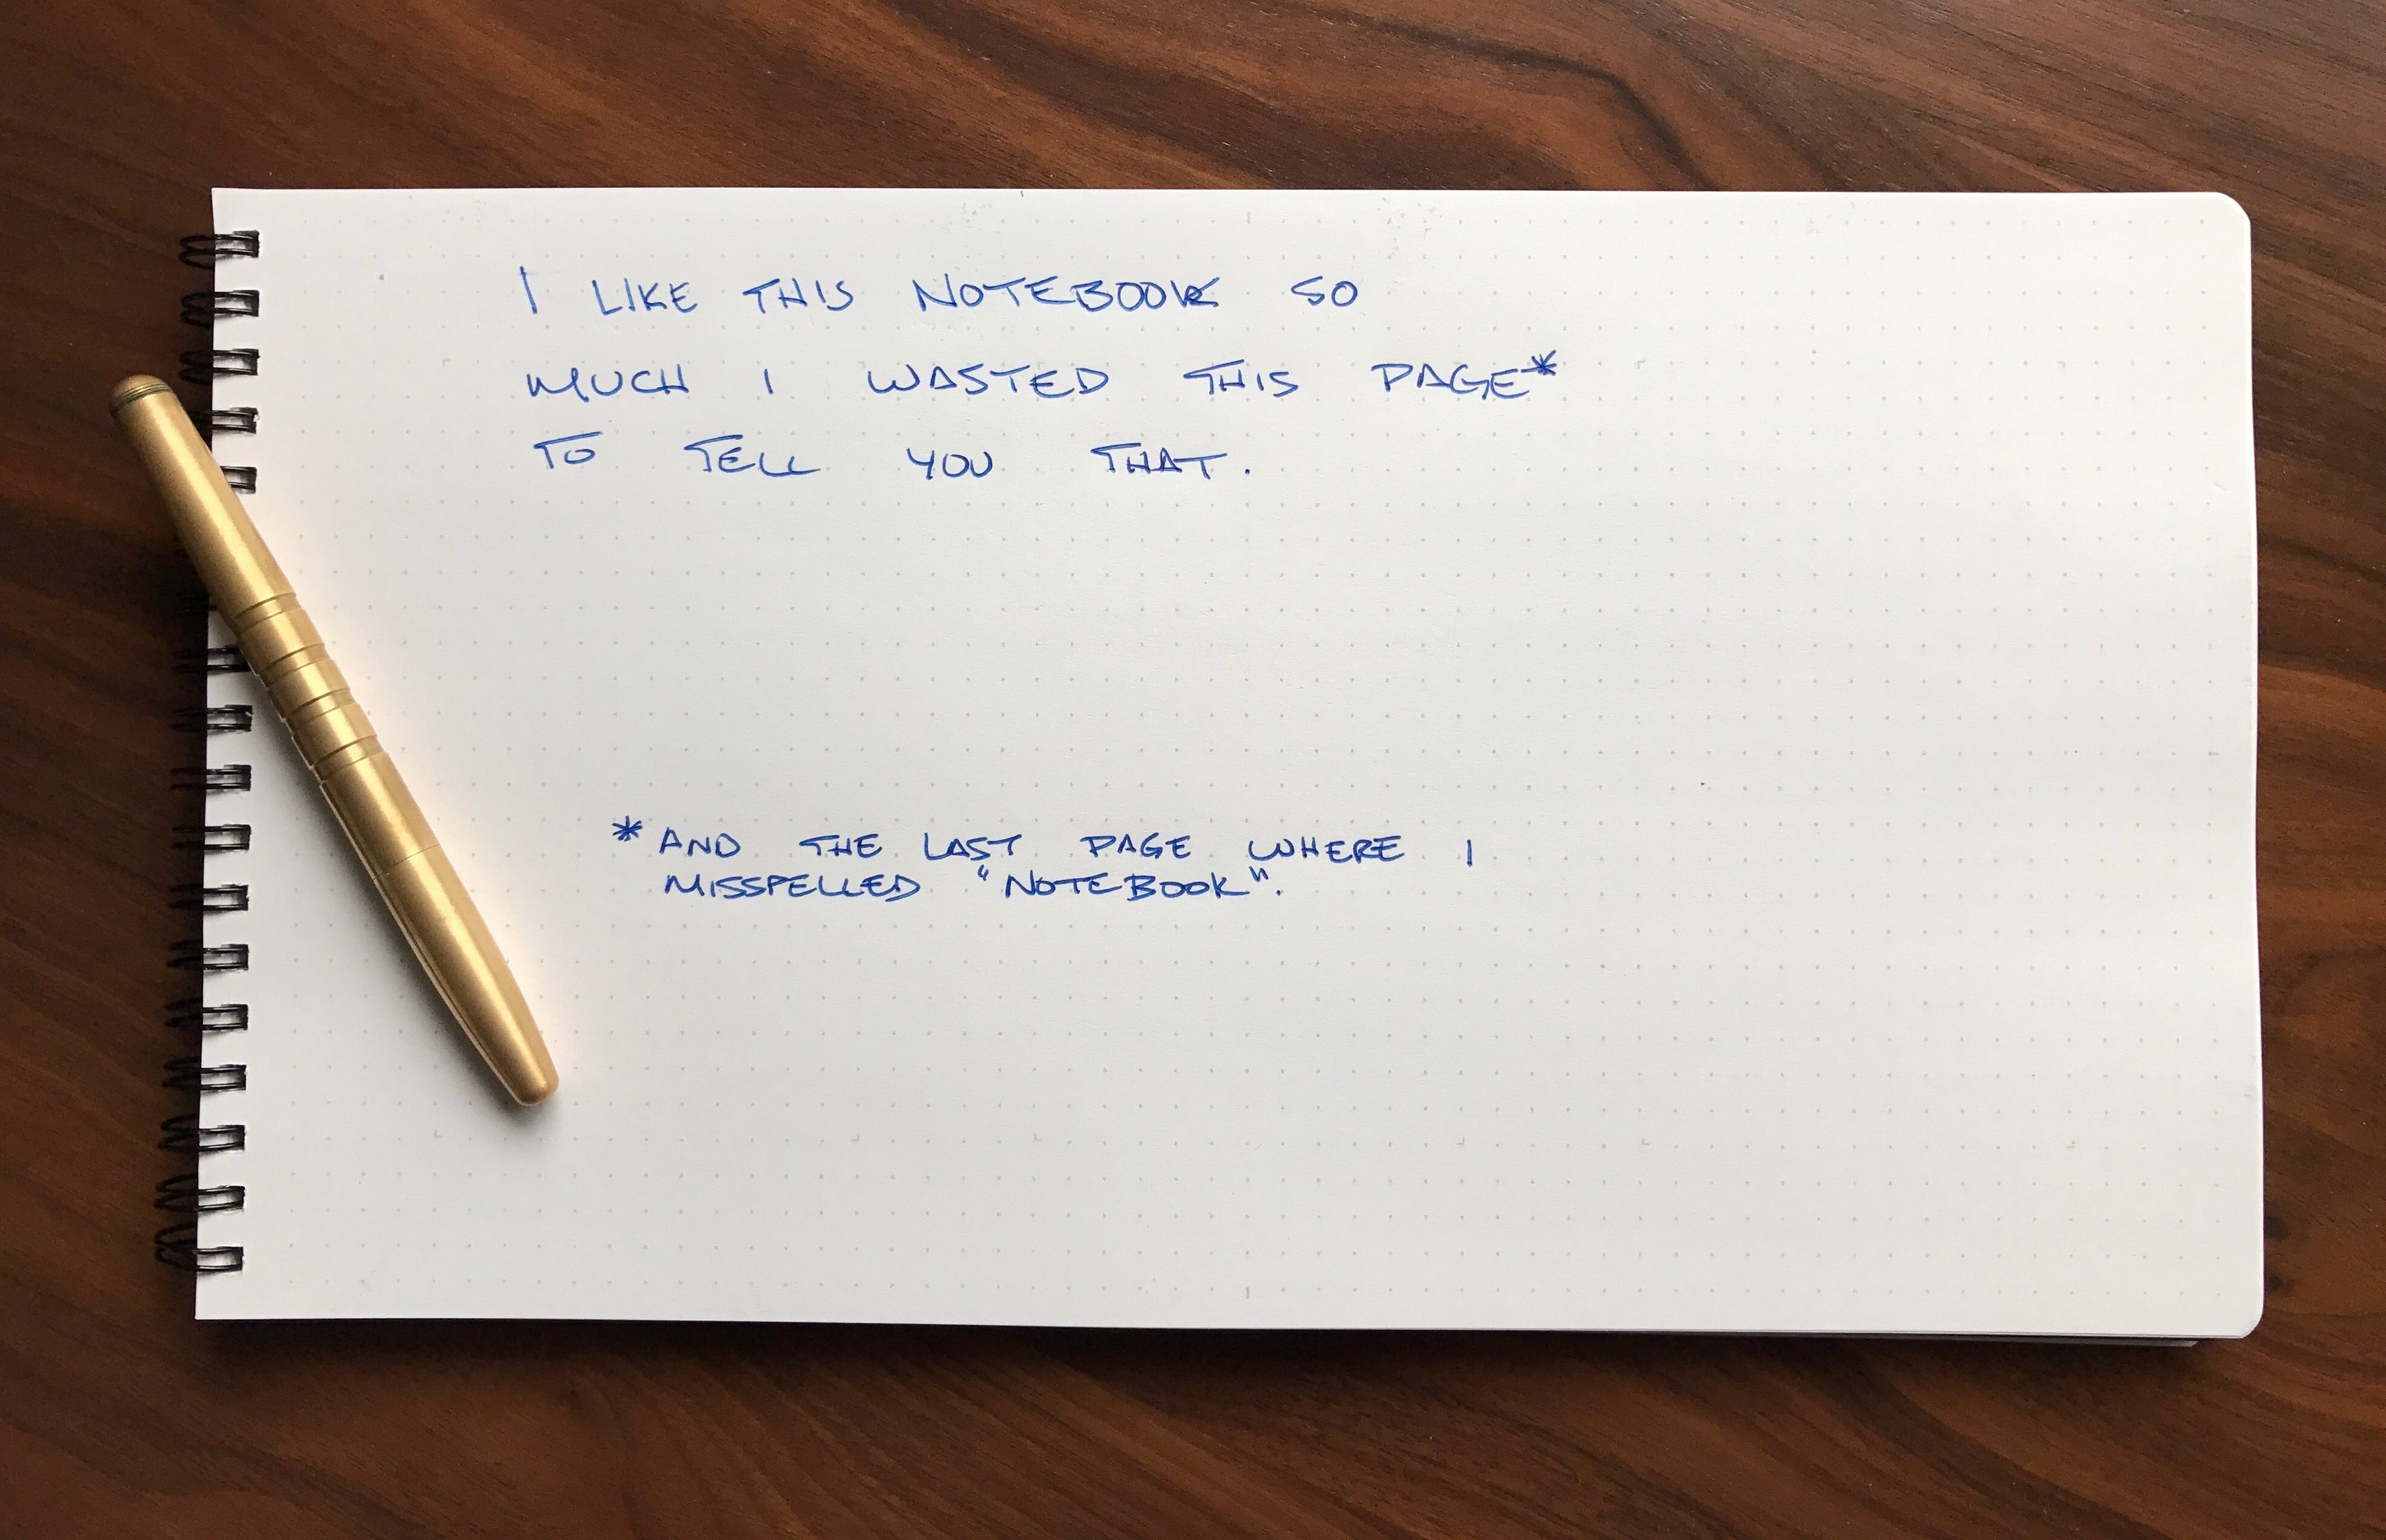 I LIKE THIS NOTEBOOK SO
MUCH I WASTED THIS PAGE*
TO TELL YOU THAT.
* AND THE LAST PAGE WHERE I
MISSPELLED "NOTEBOOK".